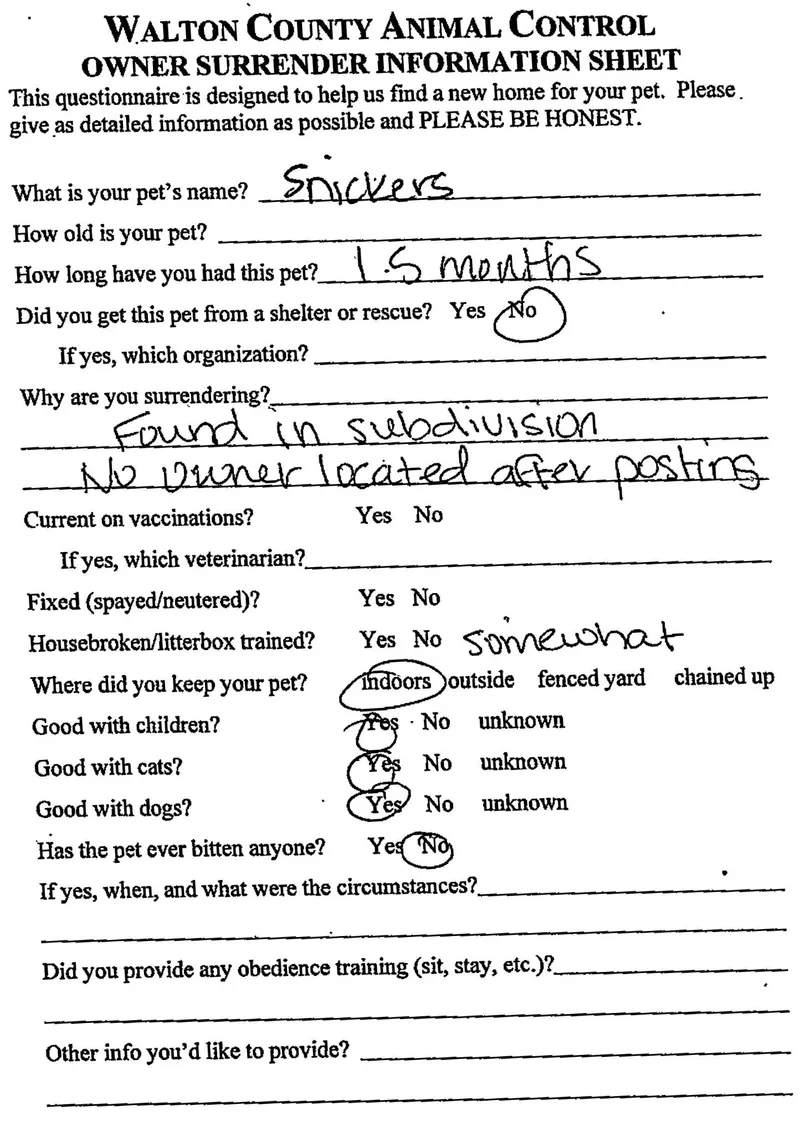 WALTON COUNTY ANIMAL CONTROL
OWNER SURRENDER INFORMATION SHEET
This questionnaire is designed to help us find a new home for your pet. Please
give as detailed information as possible and PLEASE BE HONEST.
What is your pet's name? Snickers
How old is your pet?
How long have you had this pet? 1.5 months
Did you get this pet from a shelter or rescue? Yes No
If yes, which organization?
Why are you surrendering?
Found in subdivision
No owner located after posting
Current on vaccinations? Yes No
If yes, which veterinarian?
Fixed (spayed/neutered)? Yes No
Housebroken/litterbox trained? Yes No somewhat
Where did you keep your pet? indoors outside fenced yard chained up
Good with children? Yes No unknown
Good with cats? Yes No unknown
Good with dogs? Yes No unknown
Has the pet ever bitten anyone? Yes No
If yes, when, and what were the circumstances?
Did you provide any obedience training (sit, stay, etc.)?
Other info you'd like to provide?